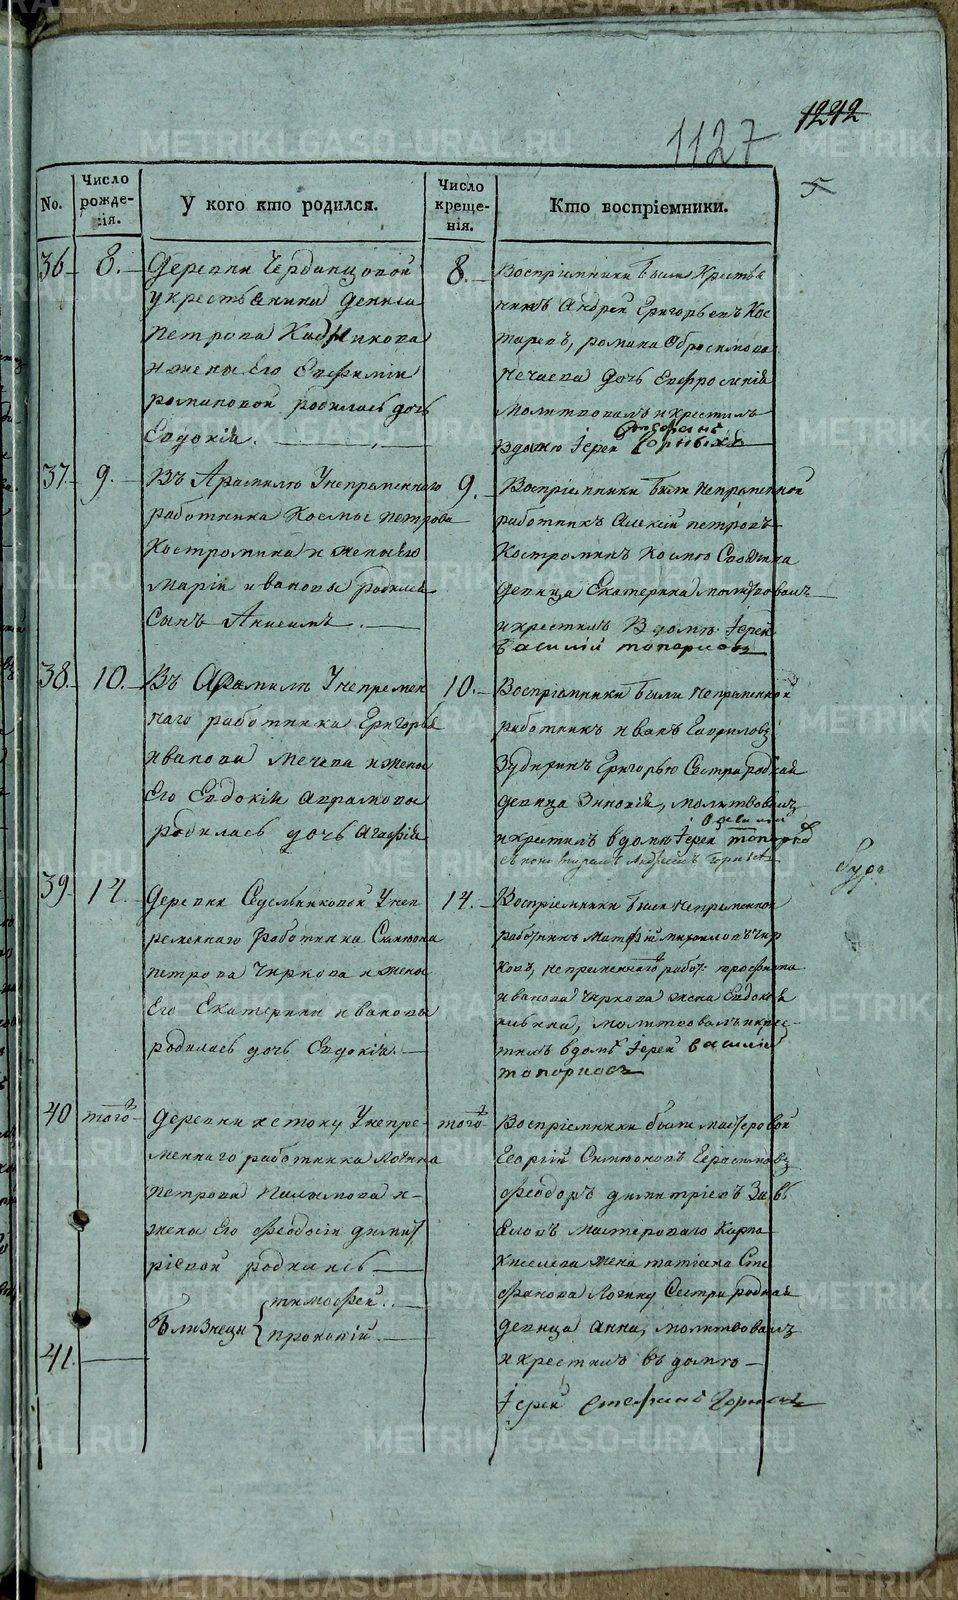 1127
1242
5
No.
Число рожде-нія.
У кого кто родился.
Число креще-нія.
Кто воспріемники.
36
8.
Деревни
у крестьянина Дениса
Петрова
и жены Его Евфиміи
Романовой родилась дочь
Евдокія.
8.
Воспріемники были Крестья
нинъ Андрей Григорьевъ Кос
таревъ, романа
Нечаева дочь Евфросинія
Молитвовалъ и крестилъ
Стефанъ
Вдомю Іерей Горныхъ
37.
9.
Въ Арамилю Унепременнаго
работника Космы Петрова
Костромина и жены Его
Маріи Ивановы родился
Сынъ Анисимъ.
9.
Воспріемники были Непременной
работникъ Алексій петровъ
Костроминъ Космю
девица Екатерина молитвовалъ
и крестилъ Вдомю Іерей
Василій топорковъ
38.
10.
Въ Арамили Унепремен
наго работника Григорья
Иванова Мечева и жены
Его Евдокіи Аврамовы
родилась дочь Агафія
10.
Воспріемники были Непременной
работникъ Иванъ Гавриловъ
Зубиринъ Григорью Сестра родная
девица Зиновія, молитвовалъ
Василій
и крестилъ вдомю Іерей
39
14.
Деревни Седельниковой Унеп
ременнаго Работника Симиона
петрова Чиркова и жены
Его Екатерины Ивановы
родилась дочь Евдокія.
14.
Воспріемники были Непременной
работникъ Матфій михаиловъ Чир
ковъ, непременнаго работ: трофима
Иванова Чиркова жена Евдокія
молитвовалъ и крес-
тилъ вдомю Іерей Василій
топорковъ
40
того
Деревни истоку Унепре-
меннаго работника Логина
Петрова и
жены Его Феодосіи димит
ріевой родились
Близнецы
тимофей.
прокопій.
41.
того
Воспріемники были мастеровой
Георгій Симионовъ Герасимовъ
Феодоръ димитріевъ
мастероваго Карпа
Киселева жена татіана Сте
фанова Логину Сестра родная
девица Анна, молитвовалъ
и крестилъ въ домю
Іерей Стефанъ Горныхъ
METRIKI.GASO-URAL.RU